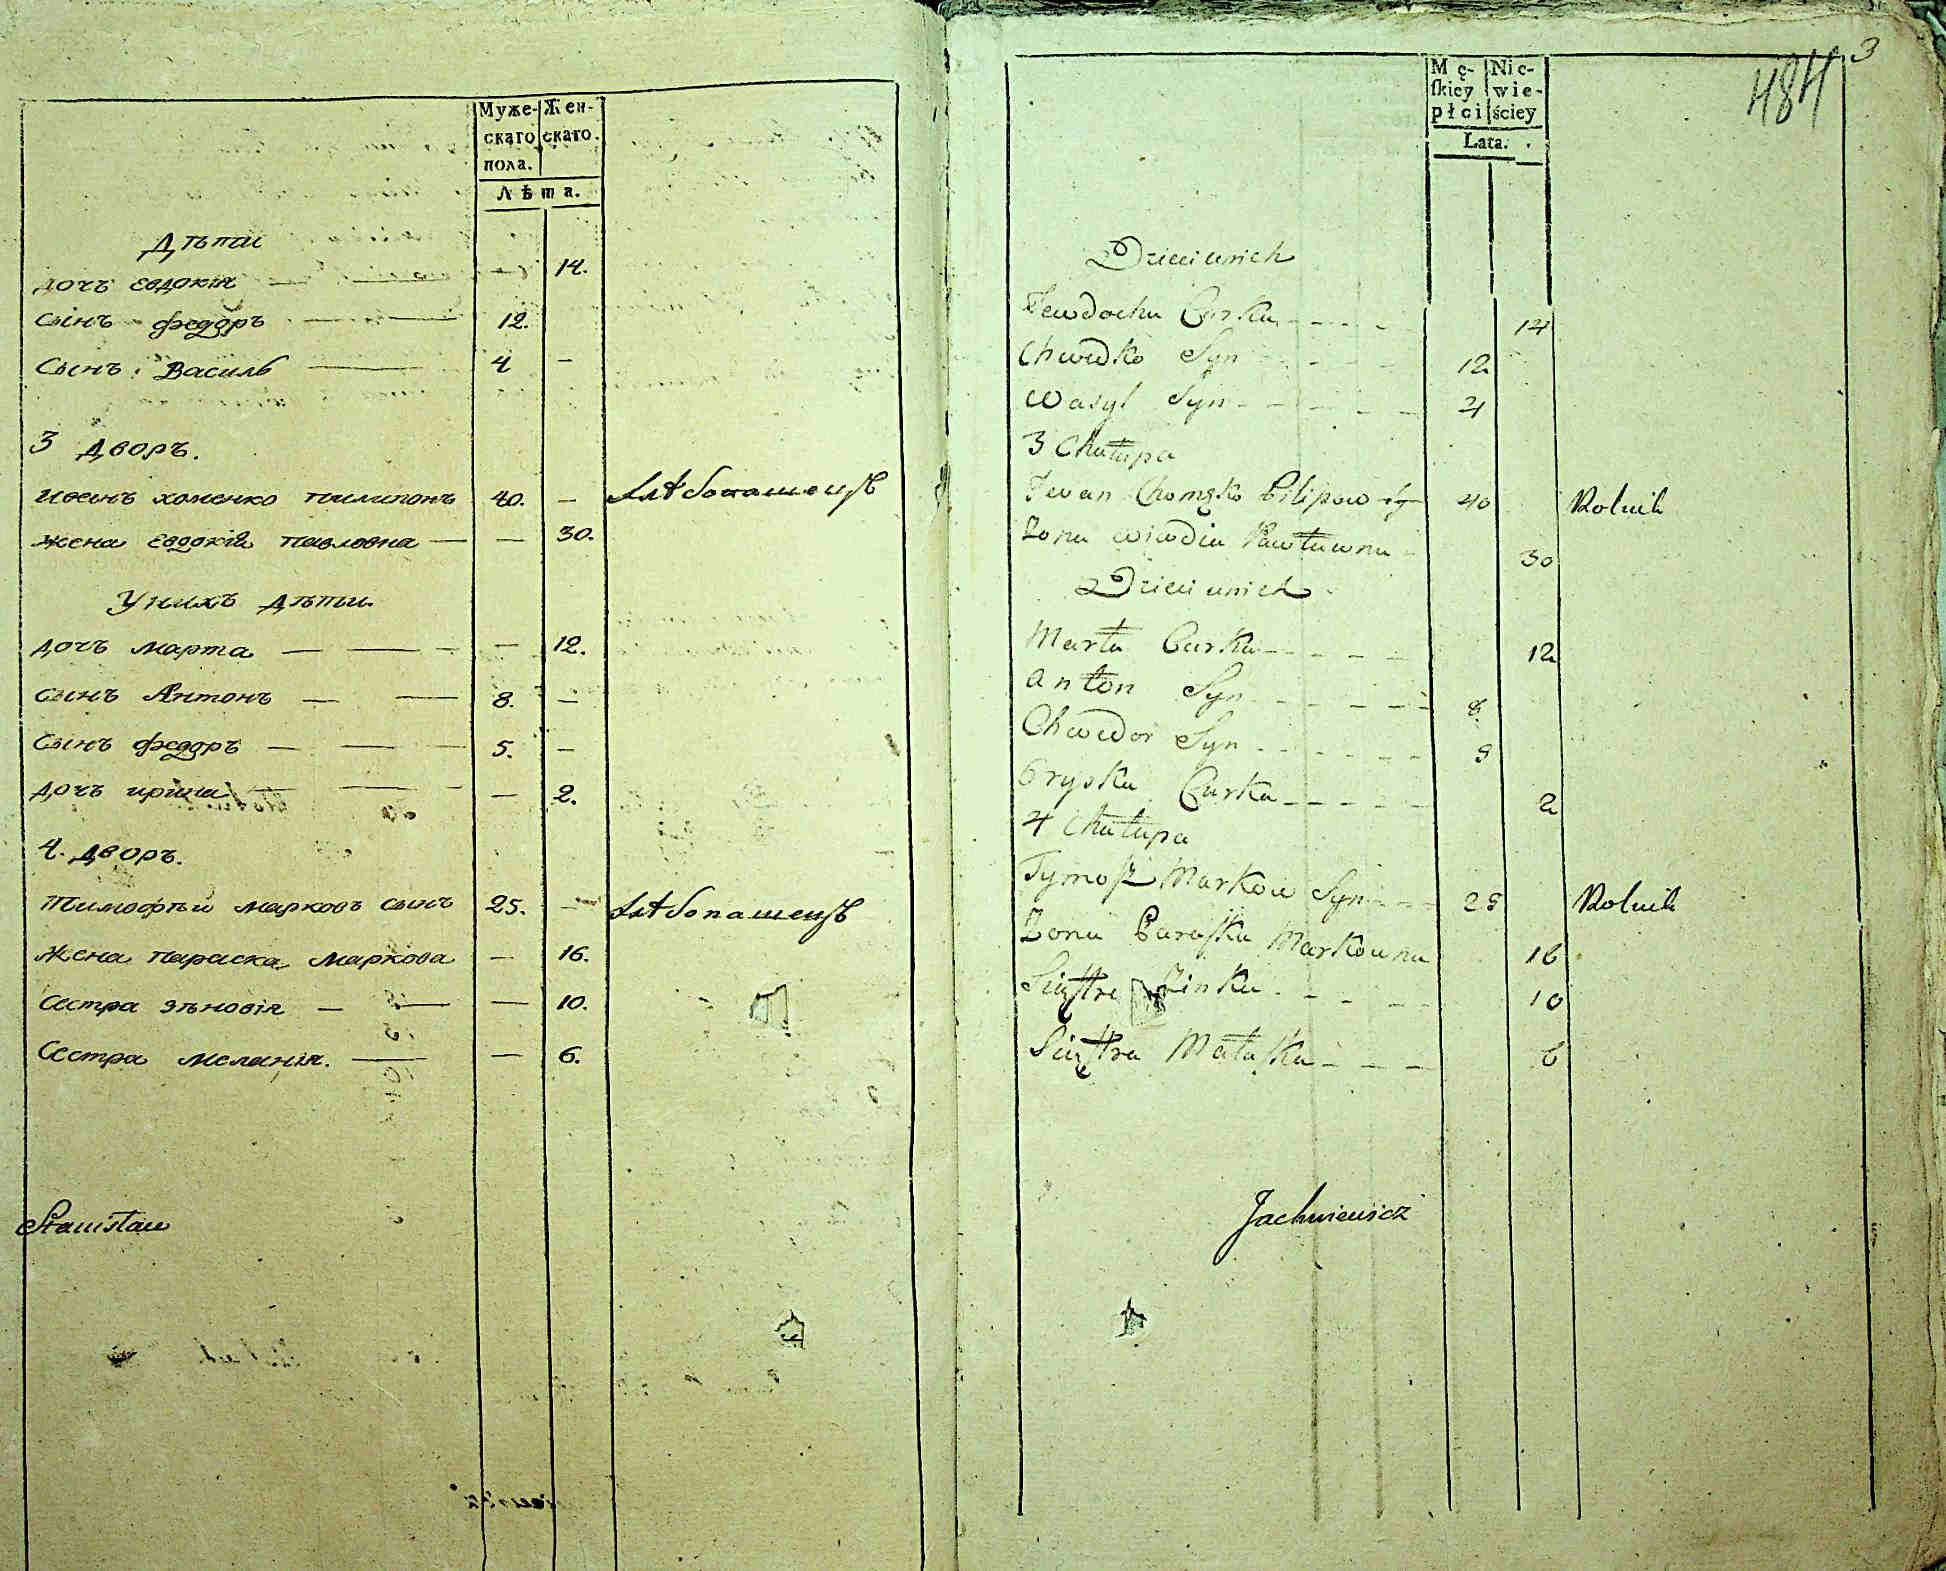 Муже- Жен-
скаго скаго.
пола.
Лѣта.
Дѣти
дочъ Евдокія — — 14.
сынъ федоръ — — 12.
Сынъ Василь — 4 —
3 дворъ.
Иванъ хоменко пилиповъ 40. — хлѣбопашецъ
жена Евдокія павловна — — 30.
У нихъ дѣти
дочъ марта — — — — 12.
сынъ Антонъ — — 8. —
Сынъ федоръ — — — 5. —
дочъ ирина — — — — 2.
4. дворъ.
Тимофѣй марковъ сынъ 25. — хлѣбопашецъ
жена параска маркова — 16.
сестра зѣновія — — — 10.
Сестра меланія. — — 6.
Stanisław
3
484
Mę- Nie-
skiey wie-
płci ściey
Lata.
Dzieci unich
Jewdocha Curka 14
Chwedko Syn 12
Wasyl Syn 4
3 Chałupa
Jwan Chomęko Pilipow 40 Rolnik
Żona Wiwdia Pawławna 30
Dzieci unich
Marta Curka 12
Anton Syn 8.
Chwedor Syn 5
Oryska Curka 2
4 Chałupa
Tymosz Markow Syn 25 Rolnik
Żona Paraska Markowna 16
Siestra Zinka 10
Siestra Małaska 6
Jachniewicz